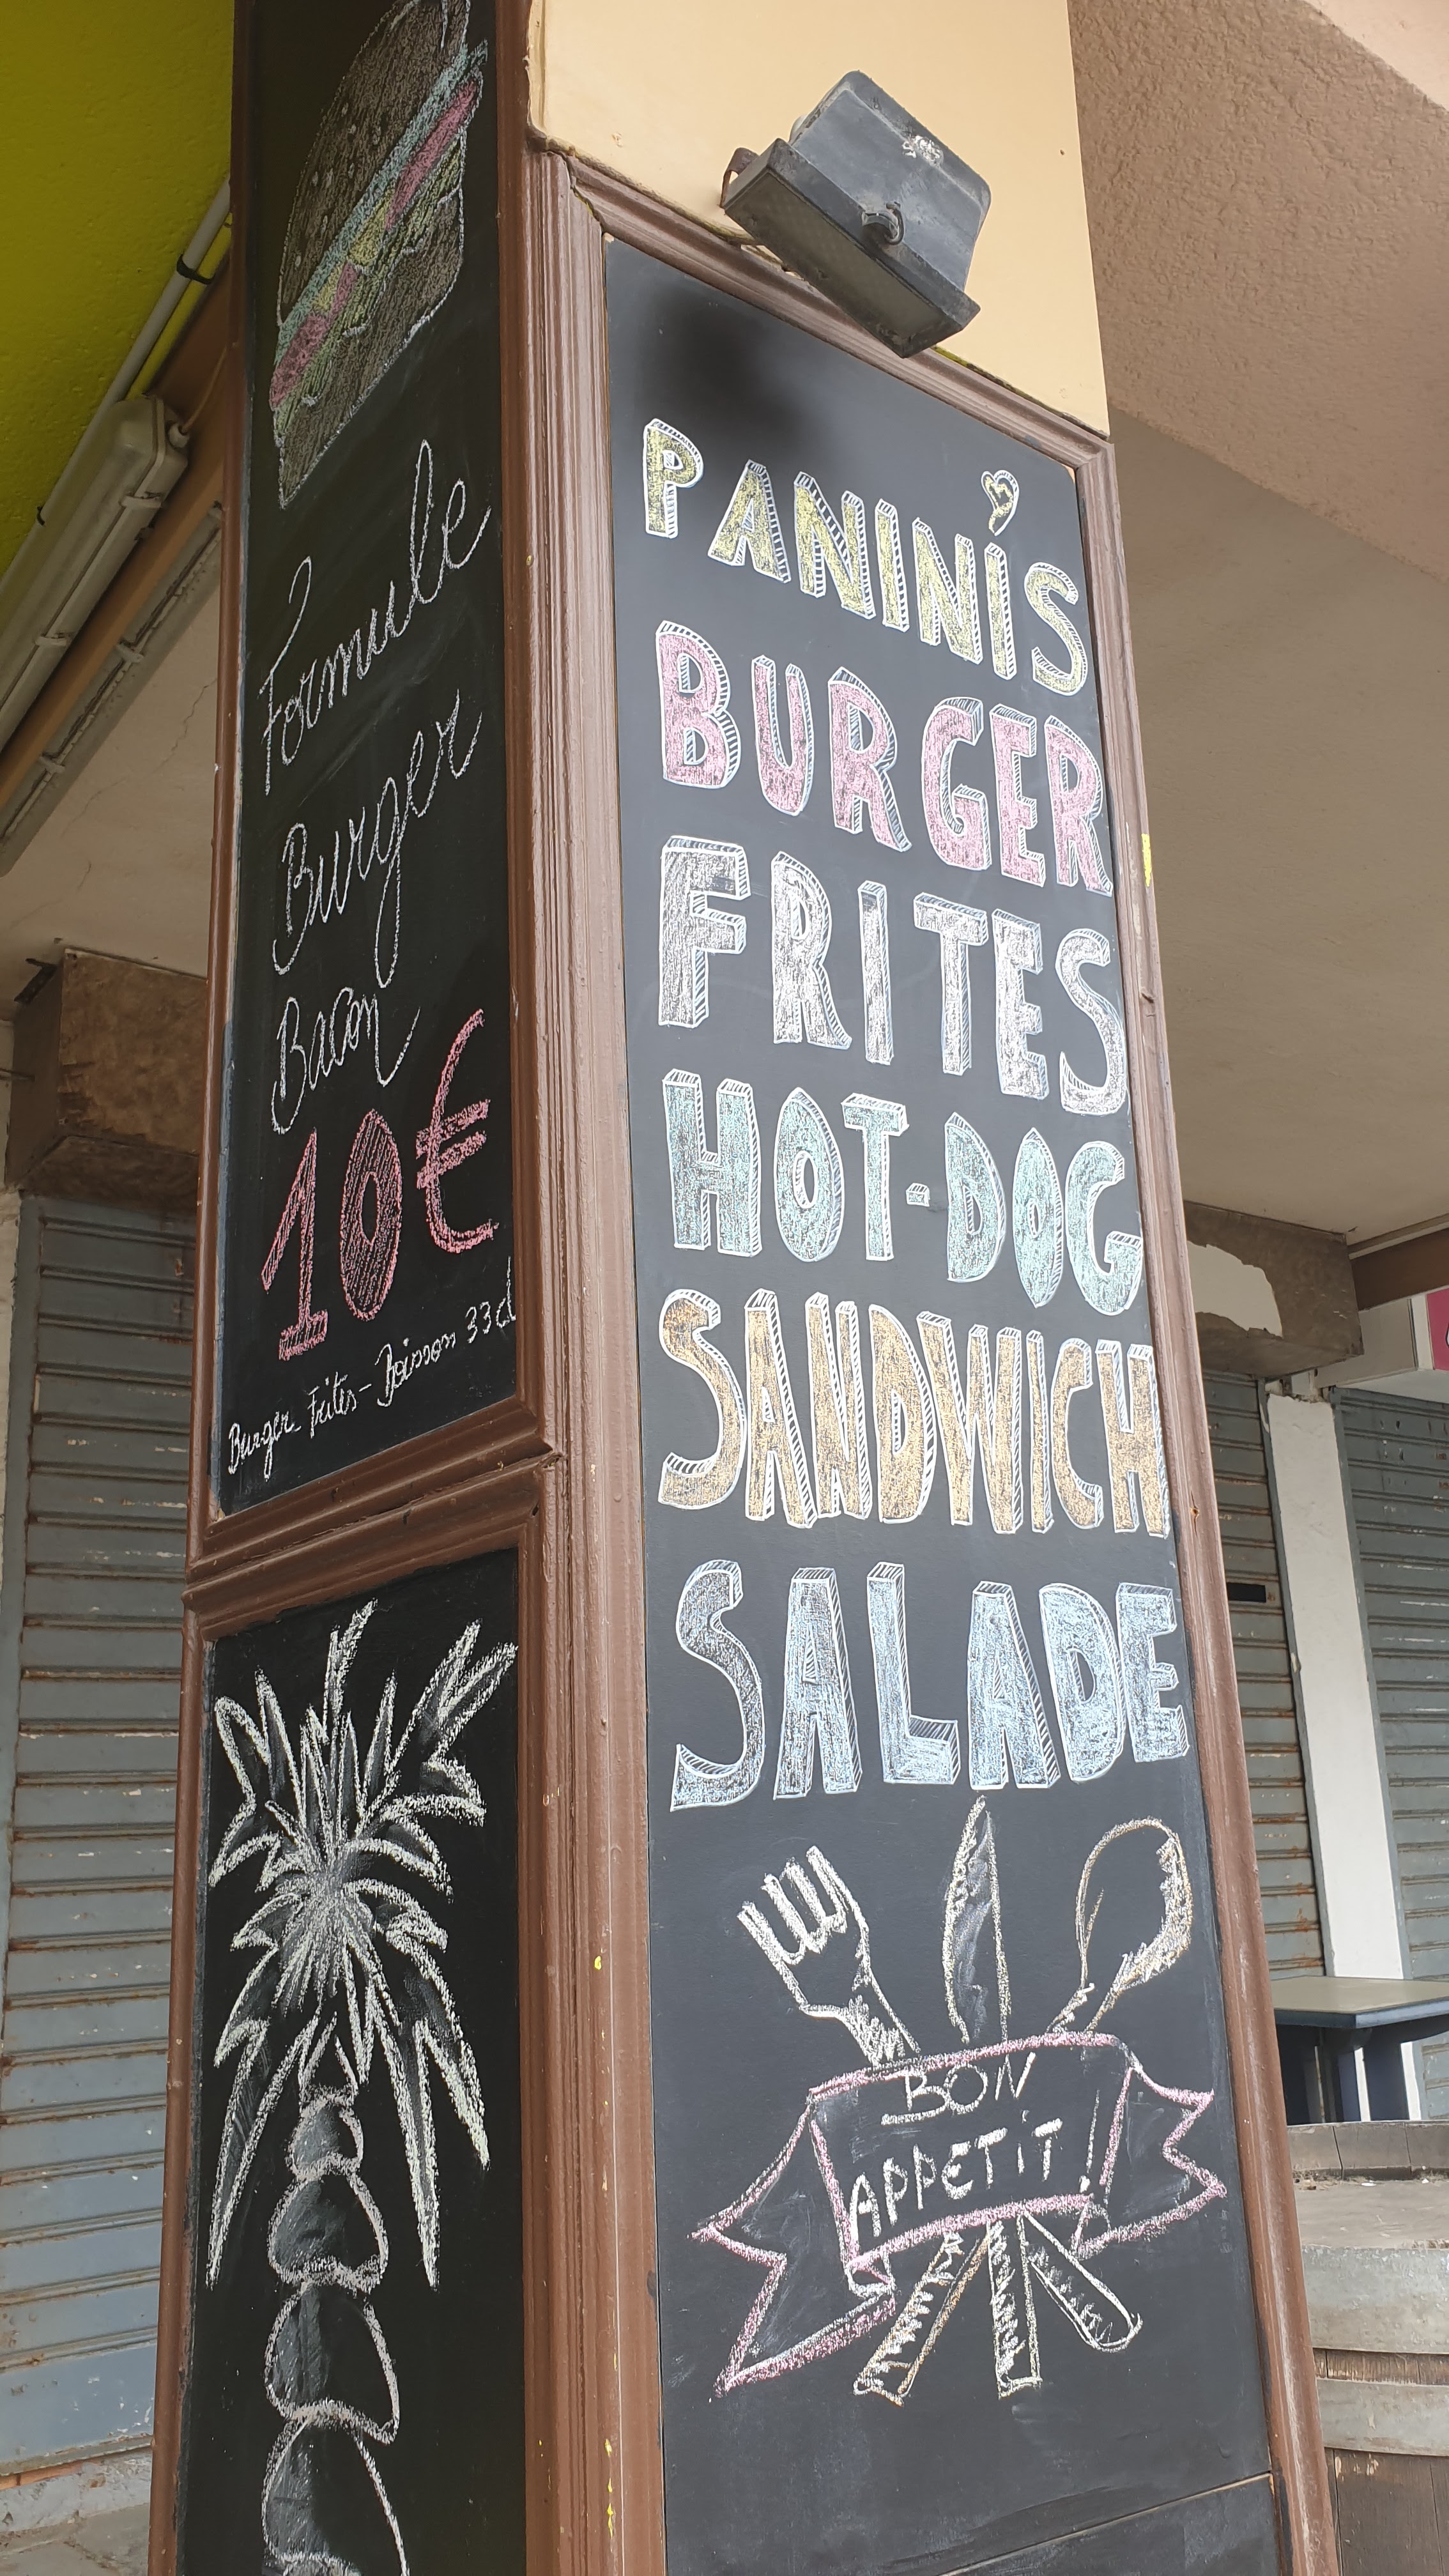 Formule
Burger
Bacon
10€
Burger - Frites - Boisson 33cl
PANINIS
BURGER
FRITES
HOT-DOG
SANDWICH
SALADE
BON
APPETIT !